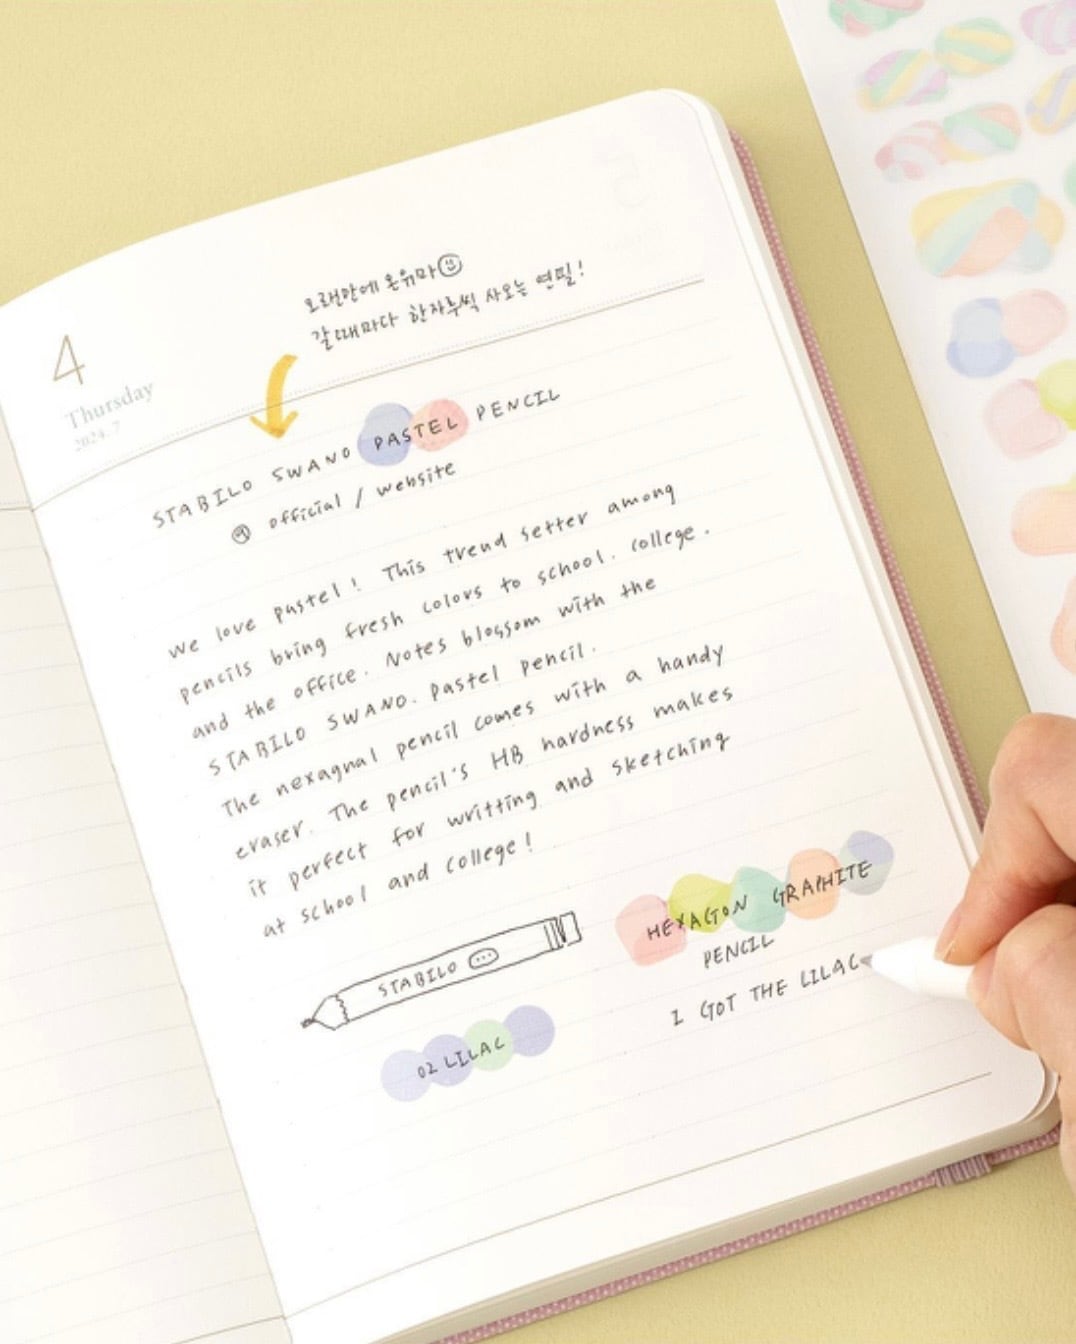 4
Thursday
2024. 7
오랜만에 온유마
갈때마다 한자루씩 사오는 연필!
STABILO SWANO PASTEL PENCIL
official / website
we love pastel! This trend setter among
pencils bring fresh colors to school. college.
and the office. Notes blossom with the
STABILO SWANO. pastel pencil.
The hexagnal pencil comes with a handy
eraser. The pencil's HB hardness makes
it perfect for writting and sketching
at school and college!
STABILO
02 LILAC
HEXAGON GRAPHITE
PENCIL
I GOT THE LILAC